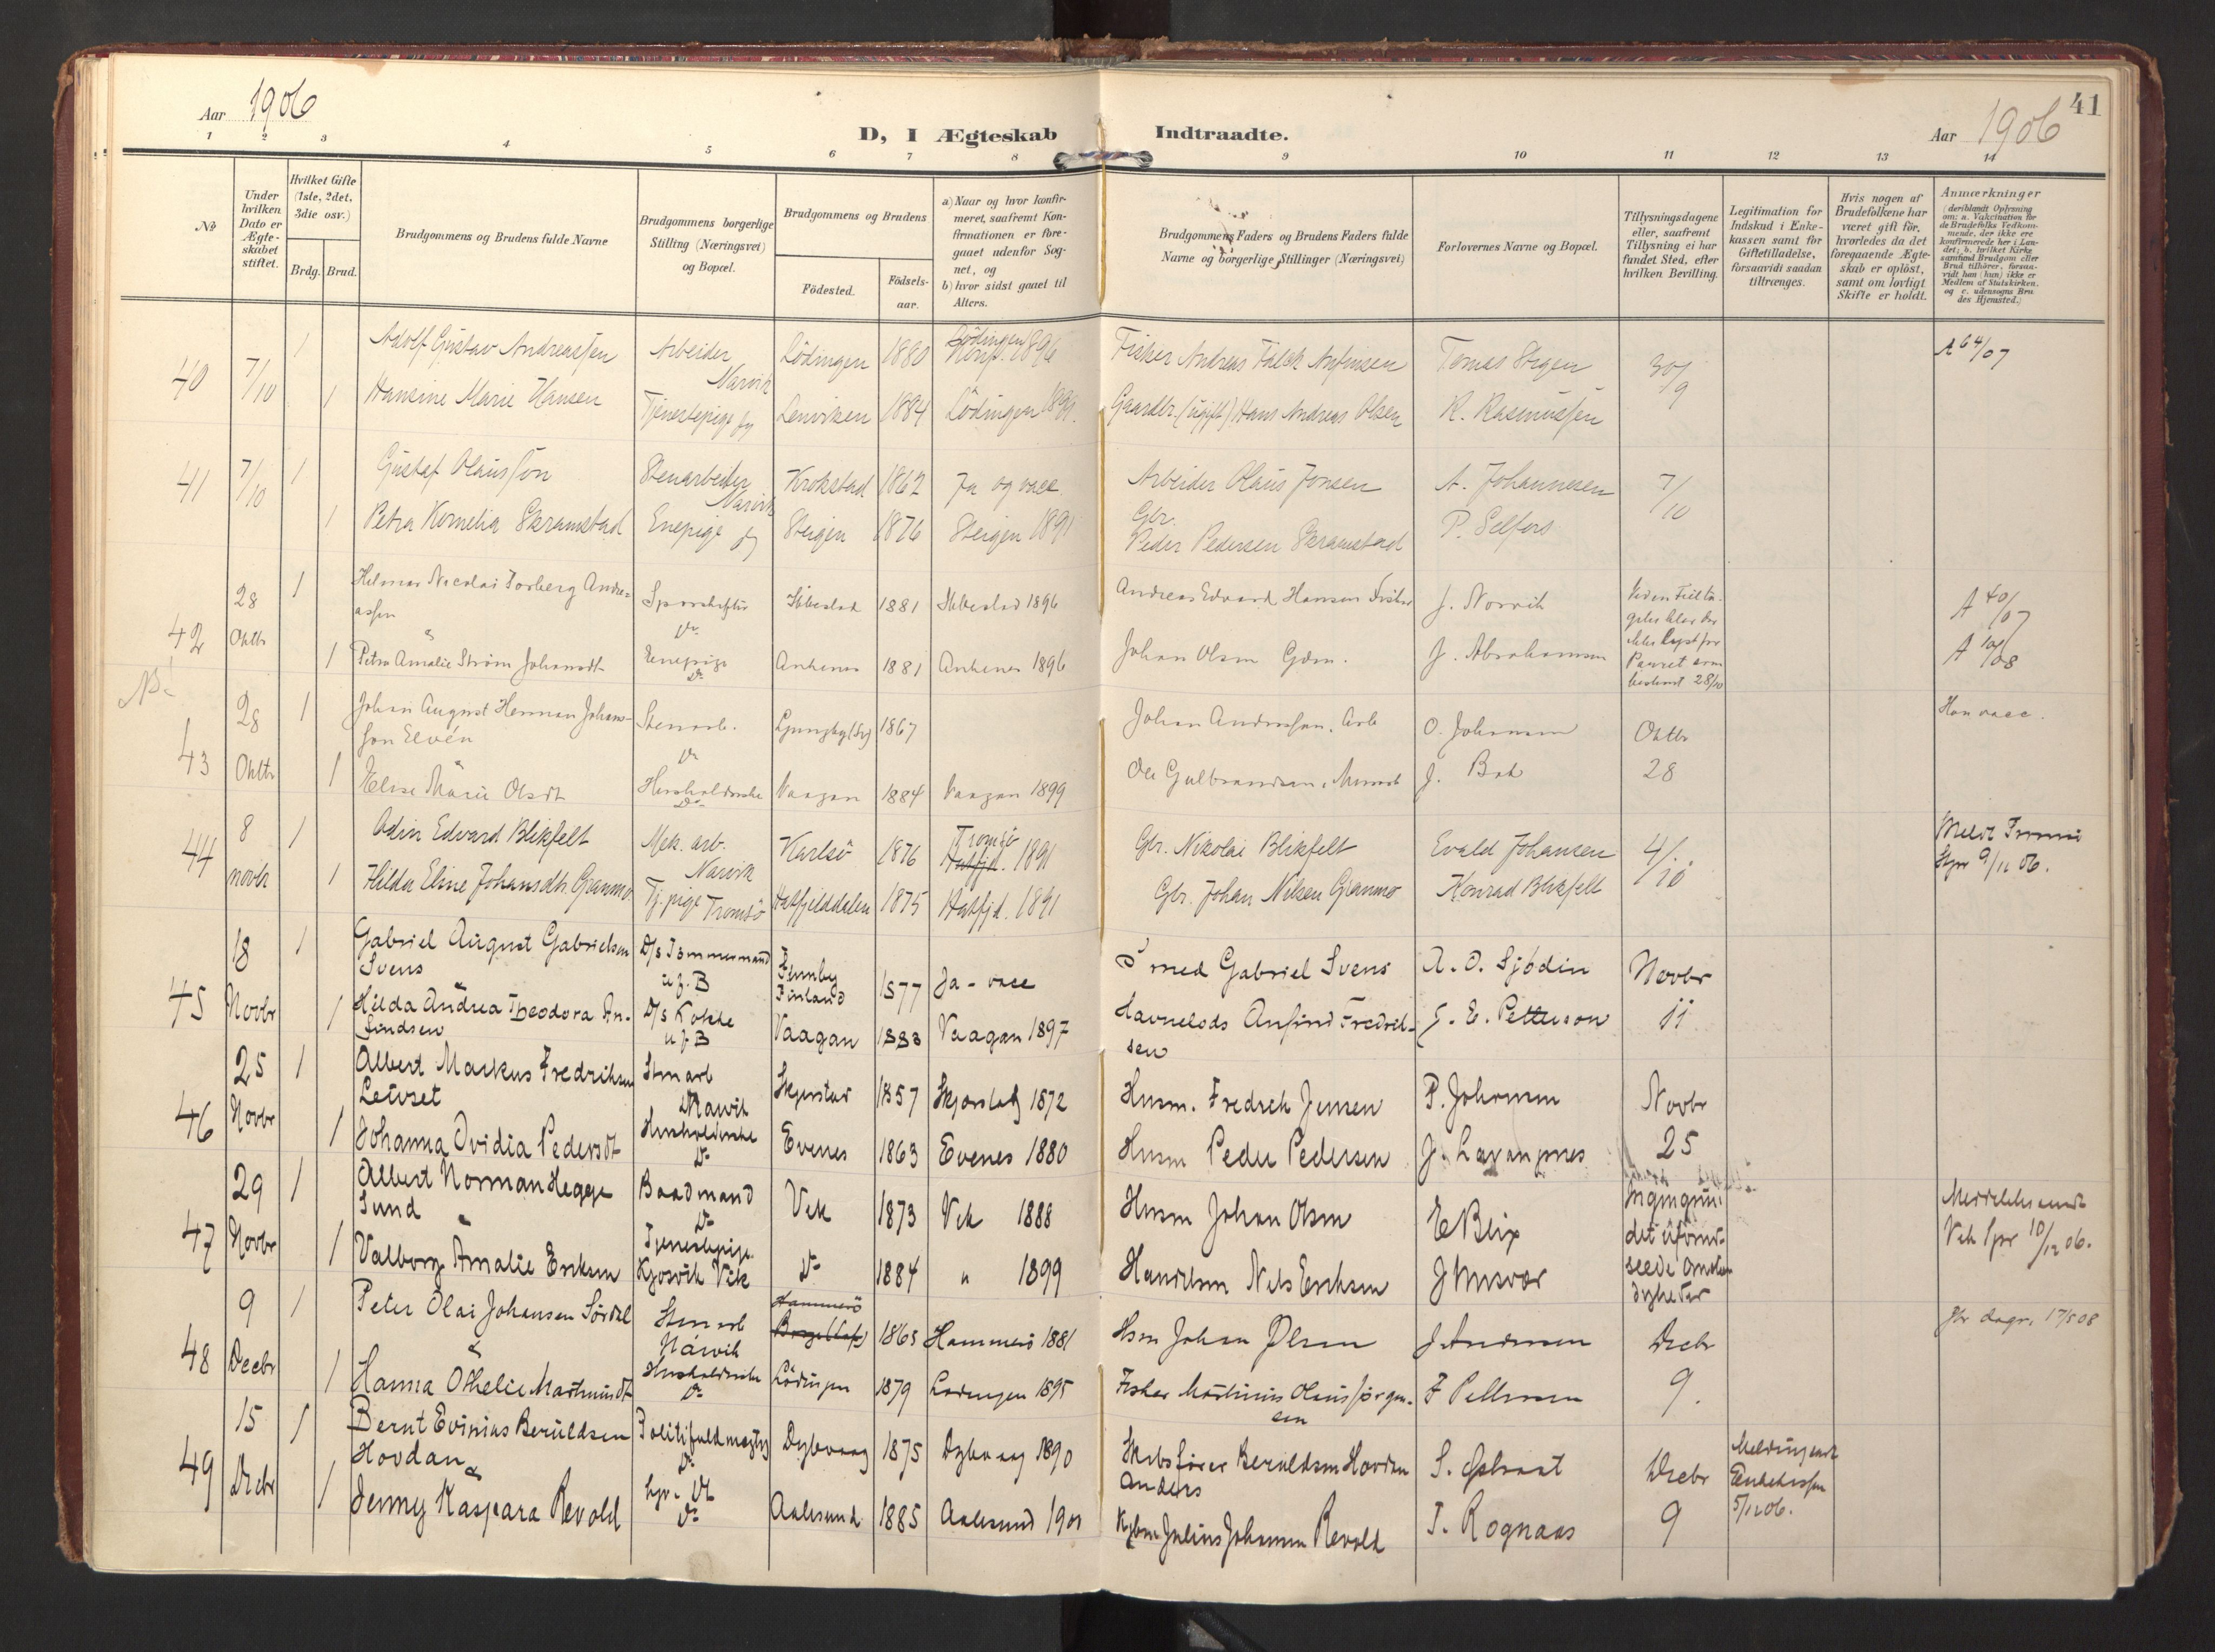 Aar 1906
D, I Ægteskab Indtraadte.
Aar 1906
41
1 2 3 4 5 6 7 8 9 10 11 12 13 14
No
Under hvilken Dato er Ægteskabet stiftet.
Hvilket Gifte (1ste, 2det, 3die osv.)
Brdg. Brud.
Brudgommens og Brudens fulde Navne
Brudgommens borgerlige Stilling (Næringsvei) og Bopæl.
Brudgommens og Brudens
Födested.
Födsels-aar.
a) Naar og hvor konfir-
meret, saafremt Kon-
firmationen er fore-
gaaet udenfor Sog-
net, og
b) hvor sidst gaaet til
Alters.
Brudgommens Faders og Brudens Faders fulde
Navne og borgerlige Stillinger (Næringsvei)
Forlovernes Navne og Bopæl.
Tillysningsdagene
eller, saafremt
Tillysning ei har
fundet Sted, efter
hvilken Bevilling.
Legitimation for
Indskud i Enke-
kassen samt for
Giftetilladelse,
forsaavidt saadan
tiltrænges.
Hvis nogen af
Brudefolkene har
været gift för,
hvorledes da det
foregaaende Ægte-
skab er oplöst,
samt om lovligt
Skifte er holdt.
Anmærkninger
(deriblandt Oplysning
om: a. Vakcination for
de Brudefolks Vedkom-
mende, der ikke ere
konfirmerede her i Lan-
det; b. hvilket Kirke
samfund Brudgom eller
Brud tilhörer, forsaa-
vidt han (hun) ikke er
Medlem af Statskirken.
og c. udensogns Bru
des Hjemsted.)
40 7/10 1 Adolf Gustav Andreassen Arbeider Narvik Lödingen 1880 Lödingen 1896 Fisker Andreas Falck Anfinsen Tomas Stegen 30/9 A 64/07
1 Hansine Marie Hansen Tjenestepige Lenviken 1884 Lödingen 1899. Gaardbr. (ugift) Hans Andreas Olsen R. Rasmussen
41 7/10 1 Gustaf Olausson Stenarbeider Narvik Krokstad 1862 Ja og vacc Arbeider Olaus Jonsen A. Johannesen 7/10
1 Petra Kornelia Skramstad Enepige Steigen 1876 Steigen 1891 Gbr. Peder Pedersen Skramstad P. Selfors
42 28 Oktbr 1 Helmer Nicolai Torberg Andre-
assen Ibbestad 1881 Ibbestad 1896 Andreas Edvard Hansen Fisker J. Norvik A 40/07
1 Petra Amalie Strøm Johansdt Enepige Ankenes 1881 Ankenes 1896 Johan Olsen Gdm. J. Abrahamsen 28/10 A 108
43 28 Oktbr 1 Johan August Herman Johans-
son Elvén Stenarb. Ljungby (Sv) 1867 Johan Andersson, Arb O. Johansen Oktbr 28 Han vacc.
1 Elise Marie Olsdt Husholderske Vaagan 1884 Vaagan 1899 Ole Gulbrandsen, J. Bak
44 8 novbr 1 Odin Edvard Blikfelt Mek. arb. Narvik Karlsö 1876 Tromsö Hatfjd. 1891 Gbr. Nikolai Blikfelt Evald Johansen 4/10 Meldt Tromsø Spr 9/11 06.
1 Hilda Eline Johansdtr. Granmo Tj.pige Tromsö Hatfjelddalen 1875 Hatfjd. 1891 Gbr. Johan Nilsen Granmo Konrad Blikfelt
45 18 Novbr 1 Gabriel August Gabrielsen
Svens D/s Tømmermand u.f.B Finland 1877 Ja - vacc Smed Gabriel Svens A. O. Sjödin Novbr 11
1 Hilda Andrea Theodora An-
findsen D/s Kokke u.f.B Vaagan 1883 Vaagan 1897 Havnelods Anfind Fredrik-
sen G. E. Petterson
46 25 Novbr 1 Albert Markus Fredriksen
Leivset Stenarb Narvik Skjerstad 1857 Skjerstad 1872 Husm. Fredrik Jensen P. Johansen Novbr 25
1 Johanna Ovidia Pedersdt Husholderske Do Evenes 1863 Evenes 1880 Husm Peder Pedersen J. Lavangnes
47 29 Novbr 1 Albert Norman Hegge
Sund Baadmand Do Vik 1873 Vik 1888 Husm Johan Olsen E Blix Meddelelse sendt Vik Spr 10/12 06.
1 Valborg Amalie Eriksen Tjenestepige Kjosvik Vik Do 1884 " 1899 Handelsm Nils Eriksen
48 9 Decbr 1 Peter Olai Johansen Sördal Stenarb Narvik Hammerö 1863 Hammerö 1881 Hsm Johan Olsen J. Andersen Decbr 9.
1 Hanna Othelie Martinusdt Husholderske Do Lödingen 1879 Lodingen 1895 Fisker Martinus Olaus Jørgen-
sen F Pettersen 17/5 08
49 15 Decbr 1 Bernt Evinius Beruldsen
Hovdan Politifuldmægtig Do Dybvaag 1875 Dybvaag 1890 Skibsfører Beruldsen Hovdan
Anders Decbr 9 5/12 06.
1 Jenny Kaspara Revold Do Aalesund 1885 Aalesund 1900 Kjbm Julius Johannes Revold T. Rognaas